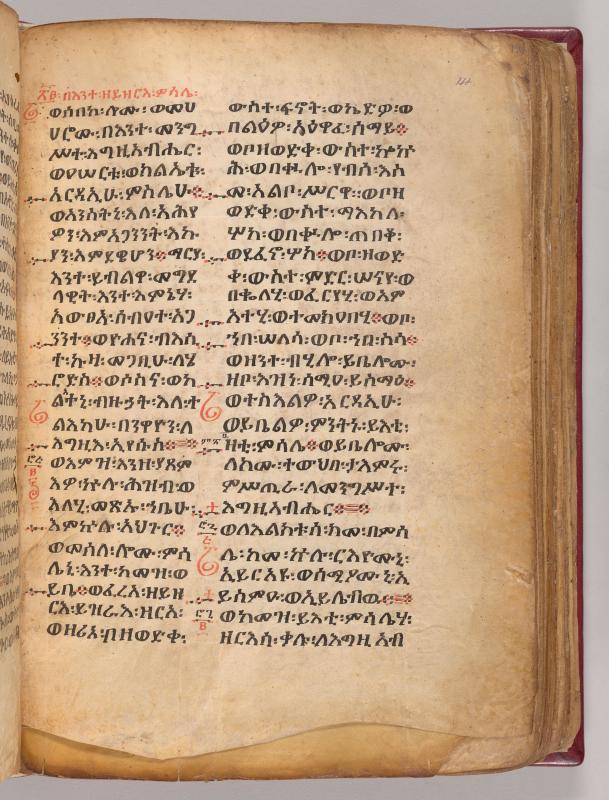 በእንተ፡ ዘይዘርእ፡ ምሳሌ፡
ወሰበከ፡ሎሙ፡ወመሀ
ሀሮሙ፡በእንተ፡መንግ
ሥተ፡እግዚአብሔር፡
ወዐሠርቱ፡ወክልኤቱ፡
አርዳኢሁ፡ምስሌሁ።
ወአንስትኒ፡እለ፡አሕየ
ዎን፡እምአጋንንት፡እኩ
ያን፡እምደዌሆን።ማርያ
እንተ፡ይብልዋ፡መግደ
ላዊት፡እንተ፡እምኔሃ፡
አውፅአ፡ሰብዐተ፡አጋ
ንንተ።ወዮሐና፡ብእሲ
ተ፡ኩዛ፡መጋቢሁ፡ለሄ
ሮድስ።ወሶስና፡ወካ
ልትኒ፡ብዙኃት፡እለ፡ተ
ልእካሁ፡በንዋዮን፡ለ
እግዚእ፡ኢየሱስ።
ወእምዝ፡እንዘ፡ያጸም
እዎ፡ኵሉ፡ሕዝብ፡ወ
እለሂ፡መጽኡ፡ኀቤሁ፡
እምኵሉ፡አህጉር።
ወመሰለ፡ሎሙ፡ምሳ
ሌኒ፡እንተ፡ከመዝ፡ወ
ይቤ።ወፈረአ፡ዘይዘ
ርእ፡ይዝራእ፡ዘርአ፡
ወዘሪአ፡ቦ፡ዘወድቀ፡
ውስተ፡ፍኖት፡ወኬድዎ፡ወ
በልዕዎ፡አዕዋፈ፡ሰማይ።
ወቦ፡ዘወድቀ፡ውስተ፡ኰኵ
ሕ፡ወበቊሎ፡የብሰ፡እስ
መ፡አልቦ፡ሥርው።ወቦ፡ዘ
ወድቀ፡ውስተ፡ማእከለ፡
ሦክ፡ወበቊሎ፡ጠበቆ፡
ወደፈኖ፡ሦክ።ወቦ፡ዘወድ
ቀ፡ውስተ፡ምድር፡ሠናየ፡ወ
በቊለሂ፡ወፈርየሂ፡ወእም
አተሂ፡ወተመክዐበሂ።ወቦ፡
ኀበ፡ሠለሳ፡ወቦ፡ኀበ፡ስሳ።
ወዘንተ፡ብሂሎ፡ይቤሎሙ፡
ዘቦ፡እዝነ፡ሰሚዐ፡ይስማዕ።
ወተስእልዎ፡አርዳኢሁ፡
ወይቤልዎ፡ምንትኑ፡ይእቲ፡
ዛቲ፡ምሳሌ።ወይቤሎሙ፡
ለክሙ፡ተውህበ፡ታእምሩ፡
ምሥጢራ፡ለመንግሥተ፡
እግዚአብሔር።
ወለእልክቱሰ፡ከመ፡በምሳ
ሌ፡ከመ፡ኵሉ፡ርእዮሙኒ፡
ኢይርአዩ፡ወሰሚዖሙኒ፡ኢ
ይስምዑ፡ወኢይሌብዉ።
ወከመዝ፡ይእቲ፡ምሳሌሃ፡
ዘርእሰ፡ቃሉ፡ለእግዚአብ